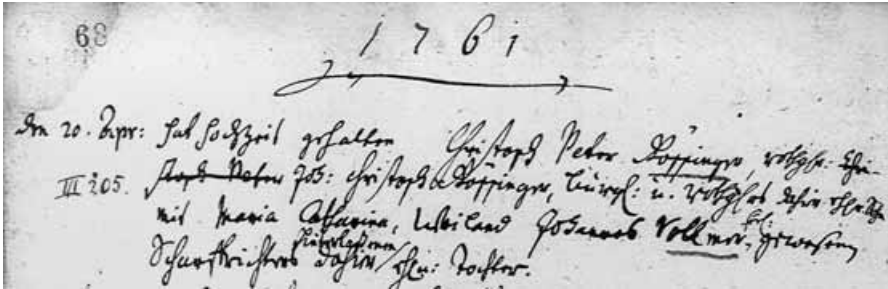 68
1761
den 20. Apr: hat Hochzeit gehalten Christoph Peter Röppinger,
III 205. Joh: Christoph Röppinger, bürgl: u. dahier
mit Maria Catharina, weiland Johannes Vollmer, gewesenen
Scharfrichters dahier hinterlassenen ehl: Tochter.